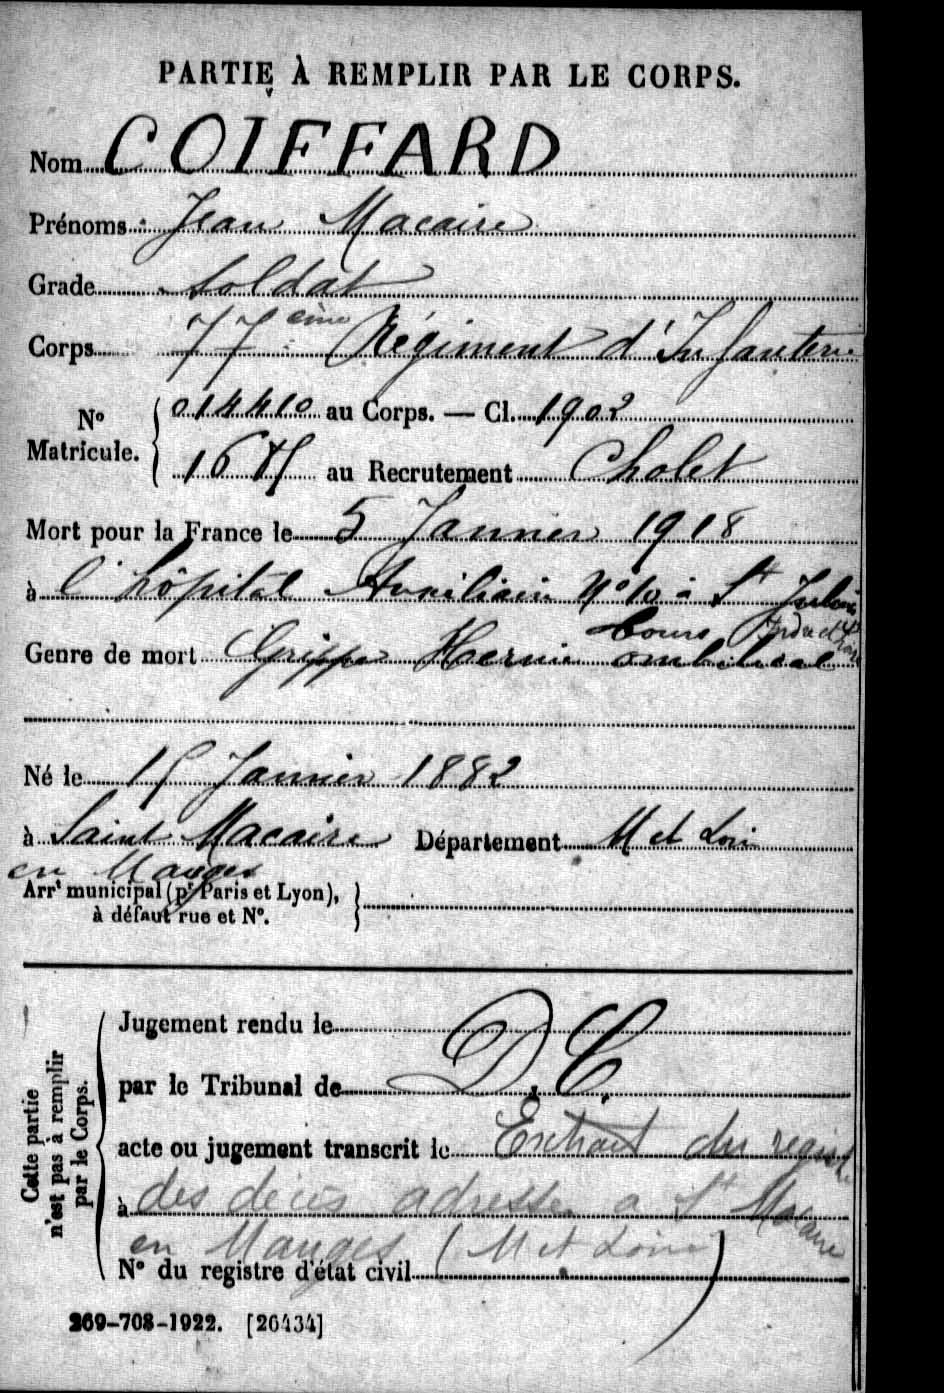 PARTIE À REMPLIR PAR LE CORPS.
Nom COIFFARD
Prénoms : Jean Macaire
Grade Soldat
Corps 77ème Régiment d'Infanterie
No Matricule. 014410 au Corps. — Cl. 1902
au Recrutement Cholet
Mort pour la France le 5 Janvier 1918
à l'hôpital Auxiliaire No 10 à St
Tours Indre et Loire
Genre de mort Grippe Hernie ombilical
Né le 15 Janvier 1882
à Saint Macaire Département M et Loire
en Mauges
Arrt municipal (pr Paris et Lyon),
à défaut rue et No.
Cette partie
n'est pas à remplir
par le Corps.
Jugement rendu le
par le Tribunal de D.C.
acte ou jugement transcrit le Extrait du registre
à des décès adressé a St Macaire
en Mauges (M et Loire)
No du registre d'état civil
269-708-1922. [26434]